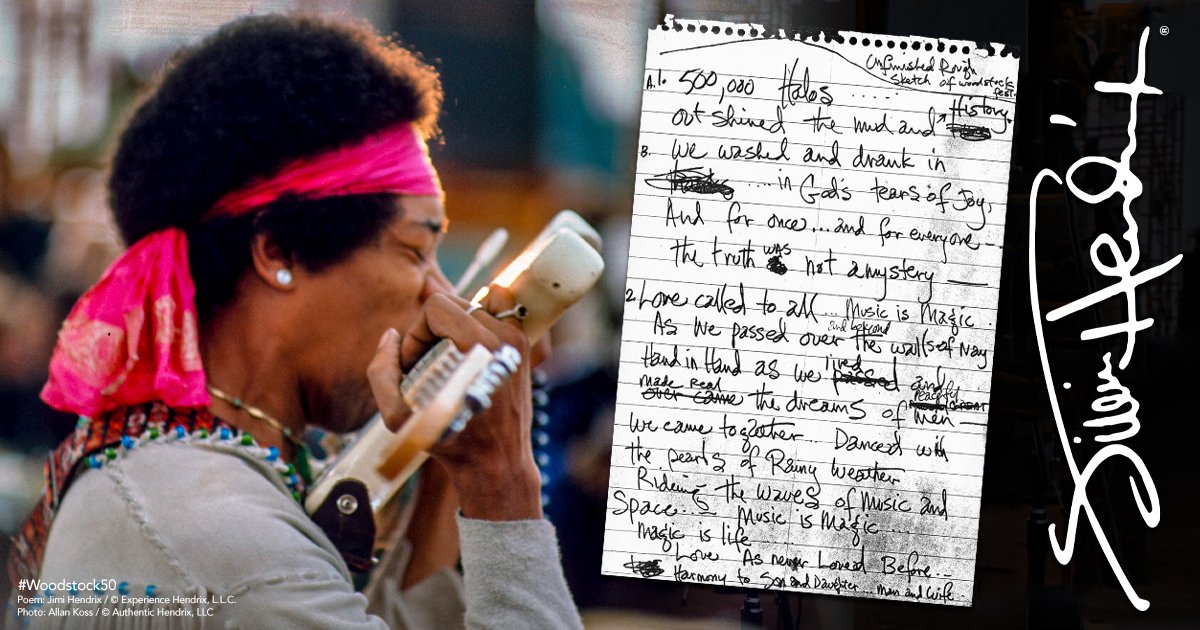 Unfinished Rough
Sketch of woodstock
fest.
A. 1. 500,000 Halos .....
out shined the mud and History.
B. We washed and drank in
.... in God's tears of Joy,
And for once... and for everyone —
the truth was not a mystery —
2. Love called to all... Music is Magic
As we passed over and beyond the walls of Nay
Hand in Hand as we lived and
made real the dreams of peaceful men —
We came together... Danced with
the pearls of Rainy weather
Riding the waves of Music and
Space... Music is Magic...
Magic is life...
Love As never Loved Before...
Harmony to Son and Daughter... man and wife.
Jimi Hendrix ®
#Woodstock50
Poem: Jimi Hendrix / © Experience Hendrix, L.L.C.
Photo: Allan Koss / © Authentic Hendrix, LLC